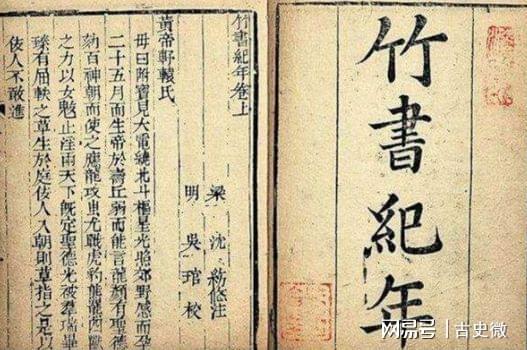 竹書紀年
竹書紀年卷上
梁 沈約脩注
明 吳琯校
黃帝軒轅氏
母曰附寶見大電繞北斗樞星光照郊野感而孕
二十五月而生帝於壽丘弱而能言龍顏有聖德
劾百神朝而使之應龍攻蚩尤戰虎豹熊羆四獸
之力以女魃止淫雨天下既定聖德光被羣瑞畢
臻有屈軼之草生於庭佞人入朝則草指之是以
佞人不敢進
网易号 | 古史微